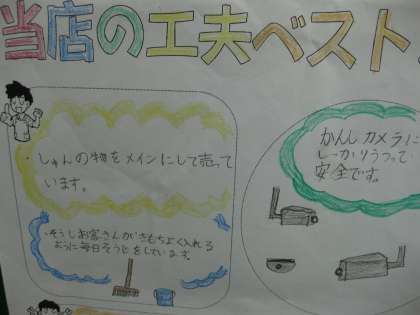 当店の工夫ベスト
・しゅんの物をメインにして売って
います。
・そうしお客さんがきもちよく入れる
ように毎日そうじをしています。
かんしカメラに
しっかりうつって
安全です。